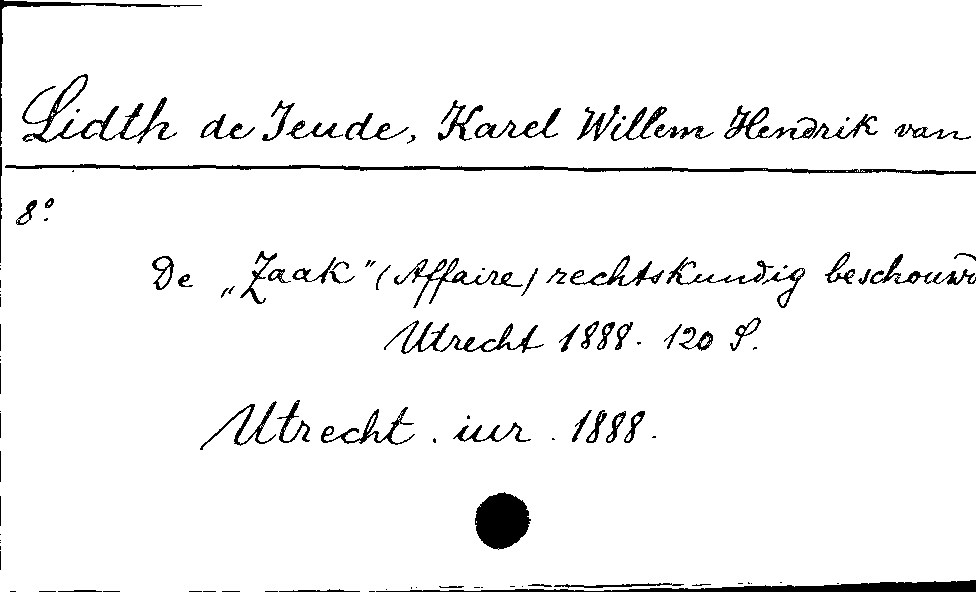 Lidth de Jeude, Karel Willem Hendrik van
8°.
De „Zaak” (Affaire) rechtskundig beschouwd
Utrecht 1888. 120 S.
Utrecht. iur. 1888.